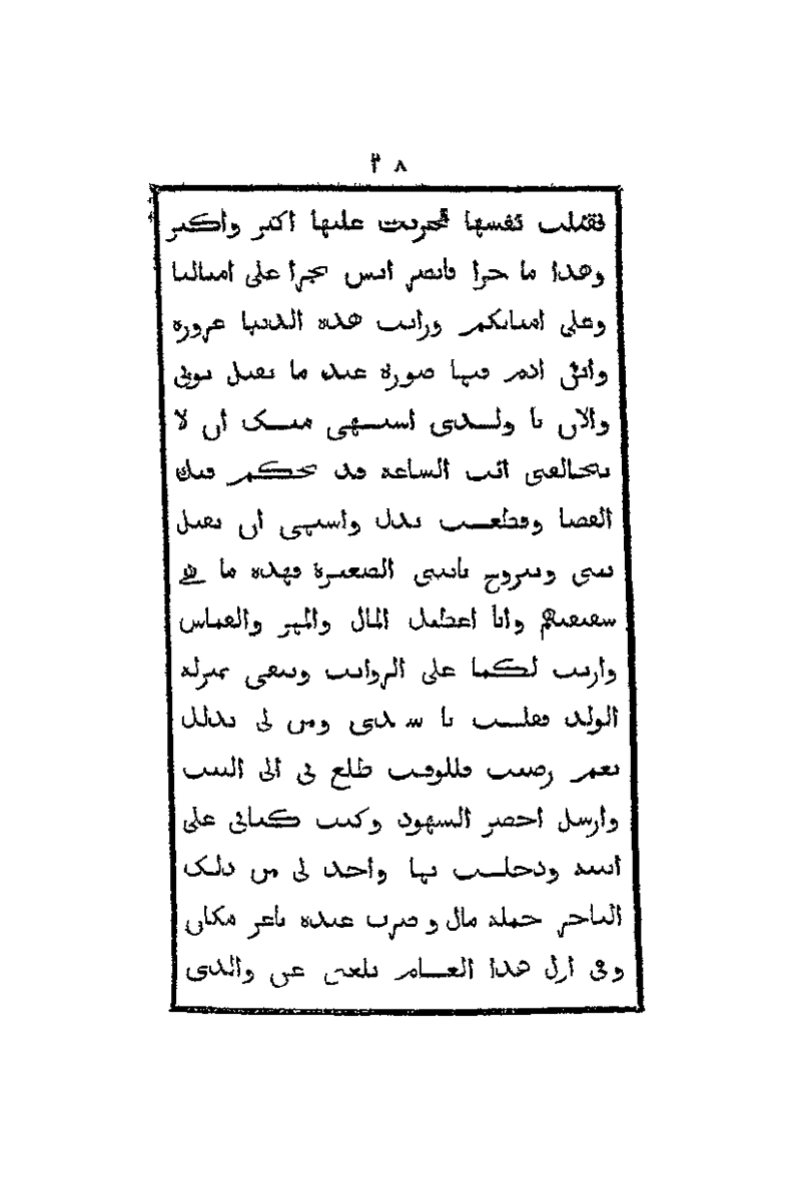 ٣٨
فقتلت نفسها فحزنت عليها اكتر واكتر
وهدا ما جرا فانصر ايش يجرا على امتالنا
وعلى امتالكم ورايت هده الدنيا غرورة
ادم فيها صورة عند ما
والان يا ولدى اشتهى منك ان لا
تخالفنى انت الساعه قد تحكم فيك
القضا وقطعت يدك واشتهى ان تقبل
منى وتتزوج بابنتى الصغيرة فهده ما هى
وانا اعطيك المال والمهر والقماش
وارتب لكما على الرواتب وتبقى بمنزله
الولد فقلت يا سيدى ومن لى بدلك
نعم رضيت فللوقت طلع بى الى البيت
وارسل احضر الشهود وكتب كتابى على
ابنته ودخلت بها واخد لى من دلك
التاجر جمله مال وصرت عنده باعز مكان
وفى اول هدا العام بلغنى عن والدى